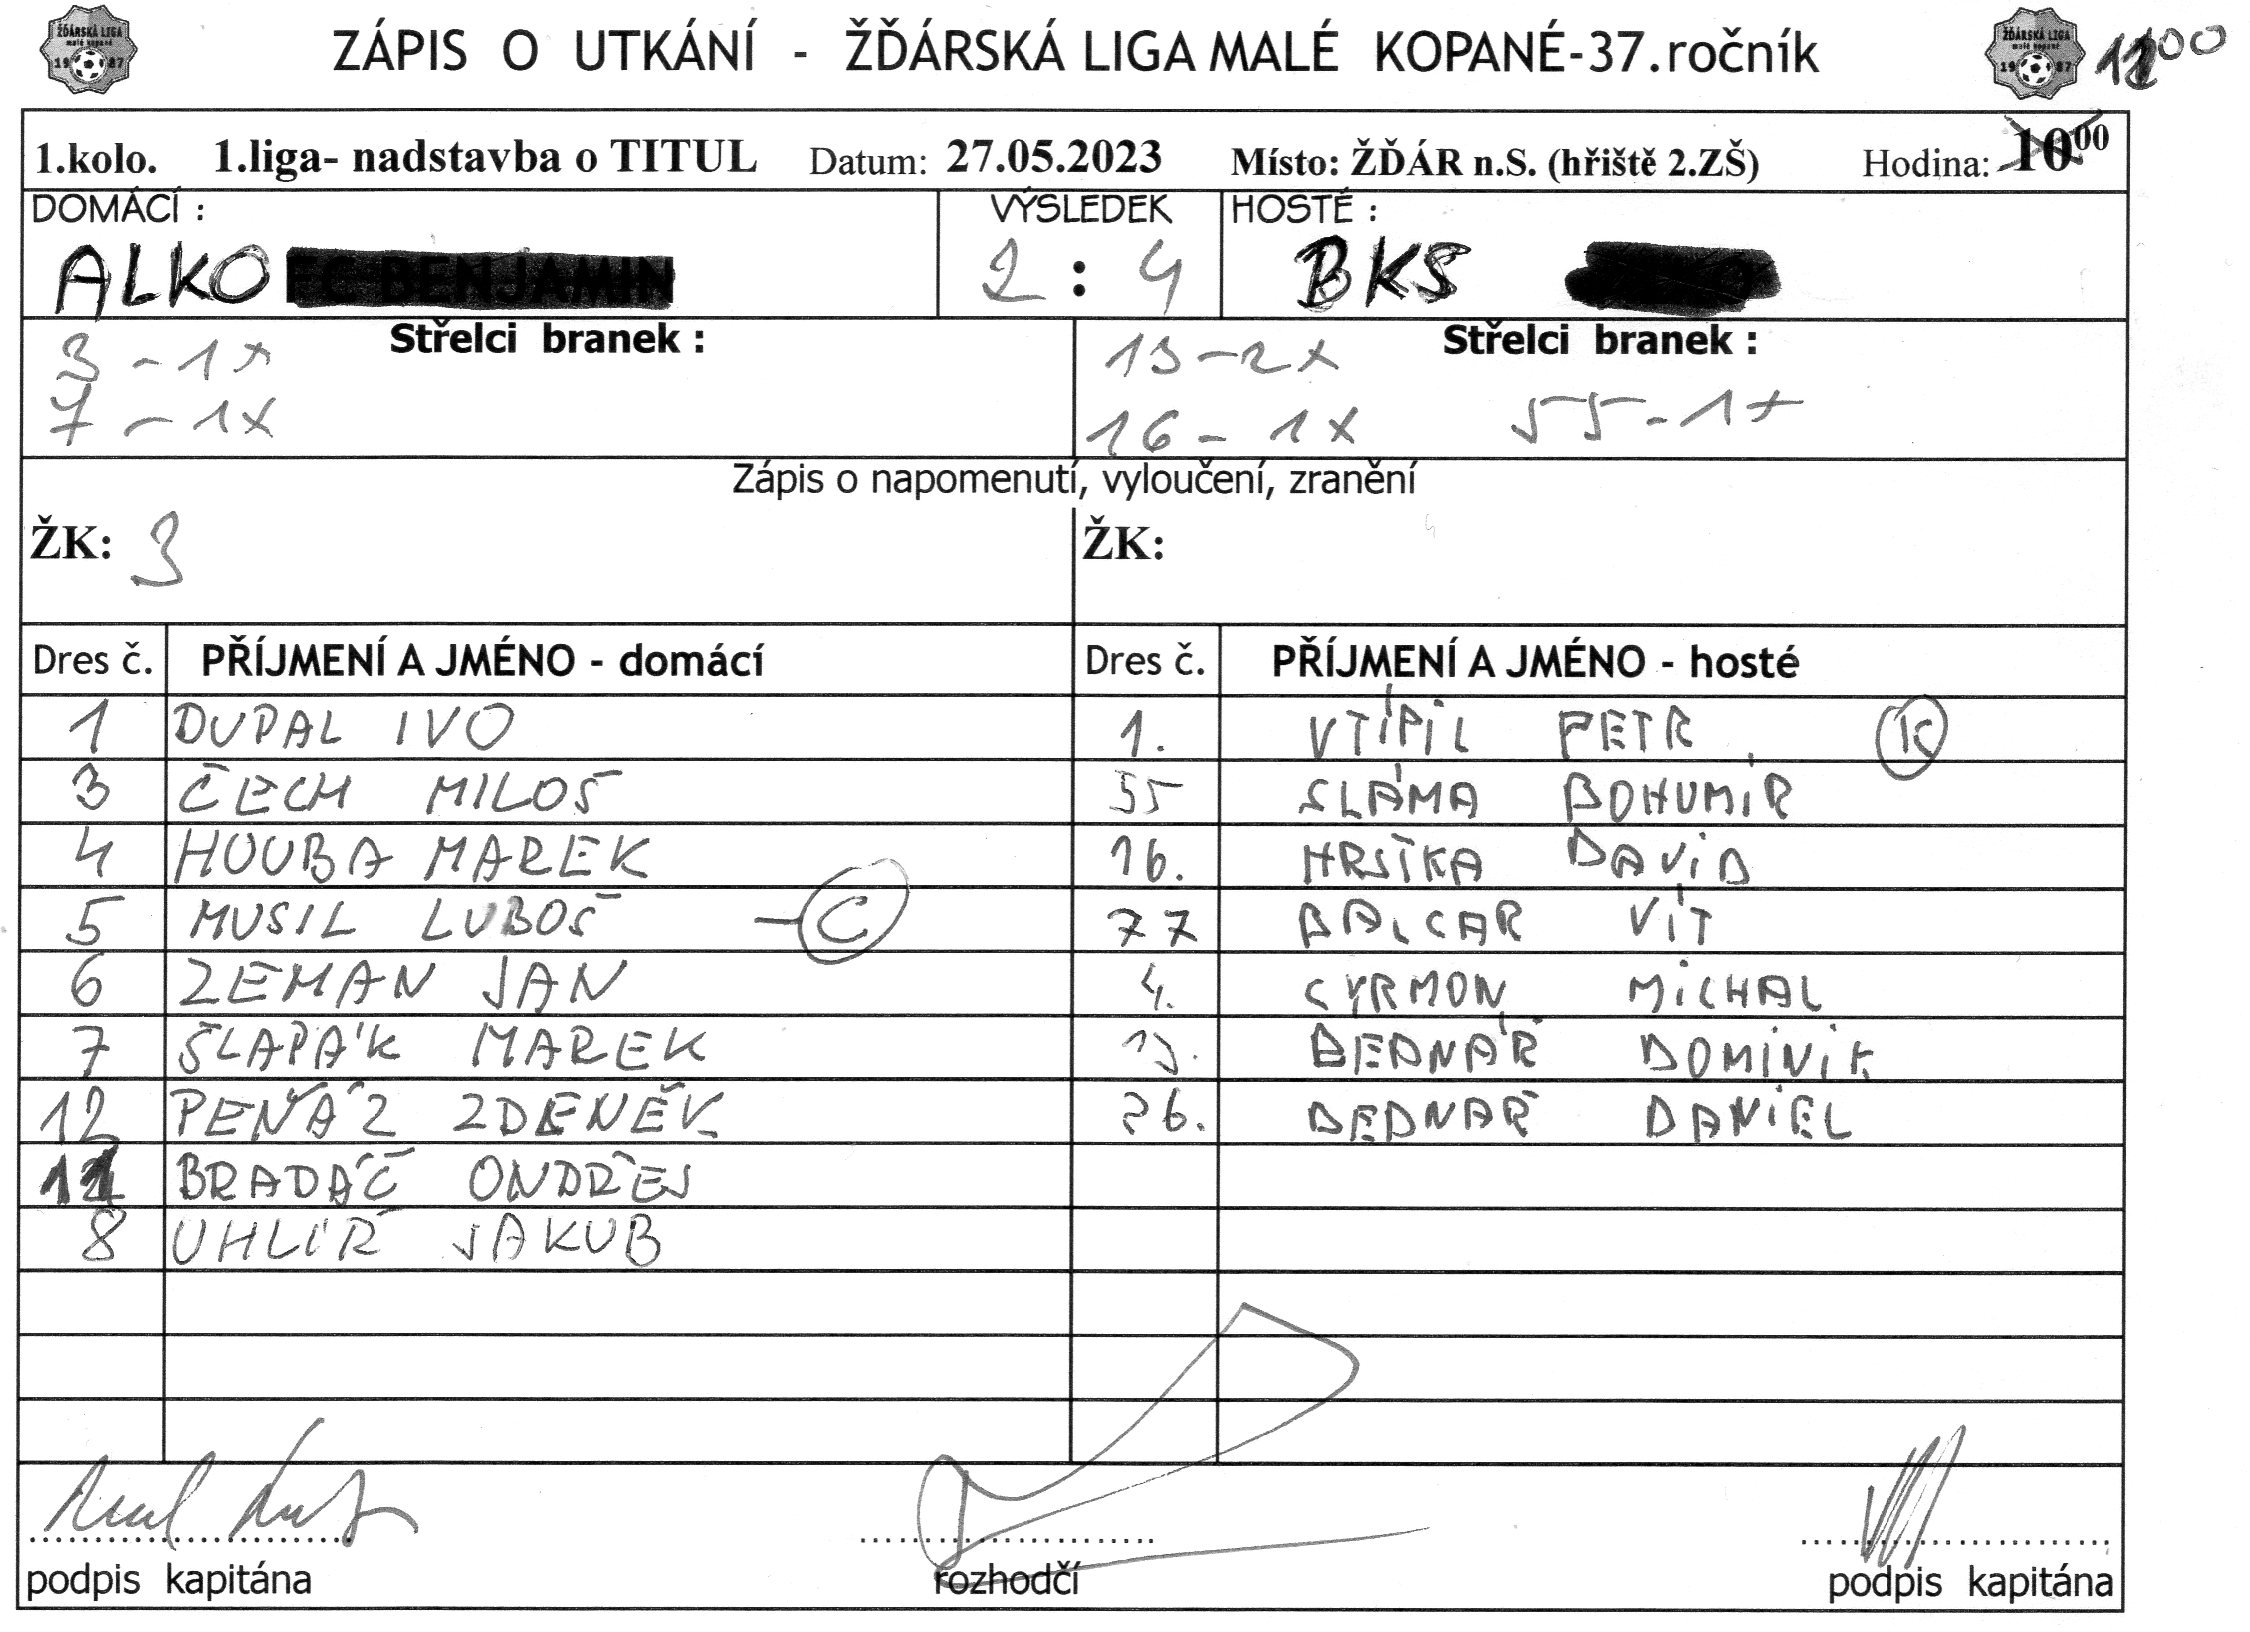 ŽĎÁRSKÁ LIGA
malé kopané
1987
ZÁPIS O UTKÁNÍ - ŽĎÁRSKÁ LIGA MALÉ KOPANÉ-37.ročník
ŽĎÁRSKÁ LIGA
malé kopané
1987
00
1.kolo. 1.liga- nadstavba o TITUL Datum: 27.05.2023 Místo: ŽĎÁR n.S. (hřiště 2.ZŠ) Hodina: 10 00
DOMÁCÍ : VÝSLEDEK HOSTÉ :
ALKO FC BENJAMIN 2 : 4 BKS
Střelci branek : Střelci branek :
3 - 1x 13 - 2x
7 - 1x 16 - 1x 55 - 1x
Zápis o napomenutí, vyloučení, zranění
ŽK: 3 ŽK:
Dres č. PŘÍJMENÍ A JMÉNO - domácí Dres č. PŘÍJMENÍ A JMÉNO - hosté
1 DUPAL IVO 1. VTÍPIL PETR K
3 ČECH MILOŠ 55 SLÁMA BOHUMÍR
4 HOUBA MAREK 16. HRSTKA DAVID
5 MUSIL LUBOŠ - C 77 BALCAR VÍT
6 ZEMAN JAN 4. CYRMON MICHAL
7 ŠLAPÁK MAREK 13. BEDNÁŘ DOMINIK
12 PEŇÁZ ZDENĚK 26. BEDNAŘ DANIEL
11 BRADÁČ ONDŘEJ
8 UHLÍŘ JAKUB
podpis kapitána rozhodčí podpis kapitána